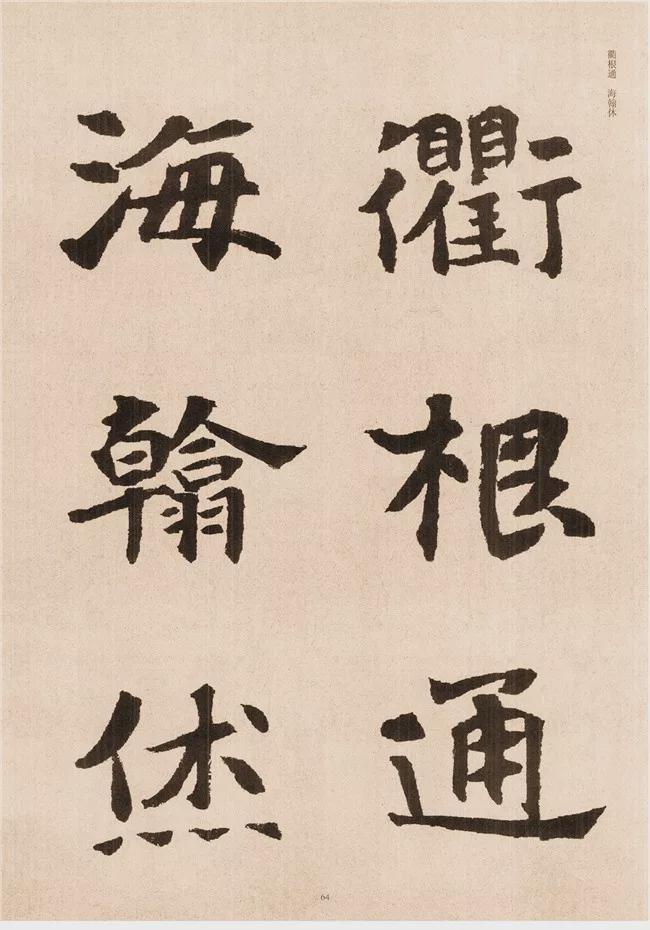 衢根通　海翰休
衢根通
海翰烋
64